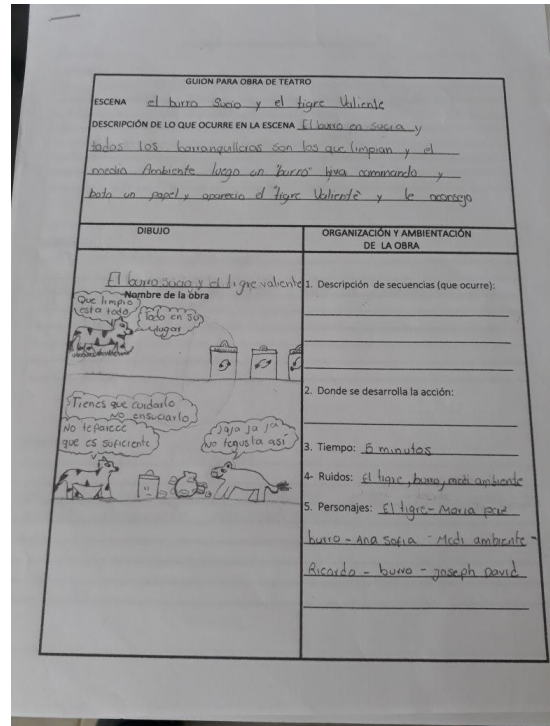 GUION PARA OBRA DE TEATRO
ESCENA el burro Sucio y el tigre Valiente
DESCRIPCIÓN DE LO QUE OCURRE EN LA ESCENA El burro en sucia y
todos los barranquilleros son los que limpian y el
medio Ambiente luego un "burro" hiva caminando y
bota un papel y aparecio el "tigre Valiente" y le aconsejo
DIBUJO
El burro sucio y el tigre valiente
Nombre de la obra
Que limpio
esta todo
Todo en su
lugar
Tienes que cuidarlo
NO ensuciarlo
No teparece
que es suficiente
Jaja ja ja
no tegusta así
ORGANIZACIÓN Y AMBIENTACIÓN
DE LA OBRA
1. Descripción de secuencias (que ocurre):
2. Donde se desarrolla la acción:
3. Tiempo: 5 minutos
4- Ruidos: El tigre, burro, medi ambiente
5. Personajes: El tigre - Maria paz
burro - Ana Sofia - Medi ambiente -
Ricardo - burro - joseph David